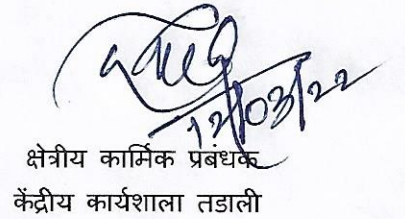 12/03/22
क्षेत्रीय कार्मिक प्रबंधक
केंद्रीय कार्यशाला तडाली